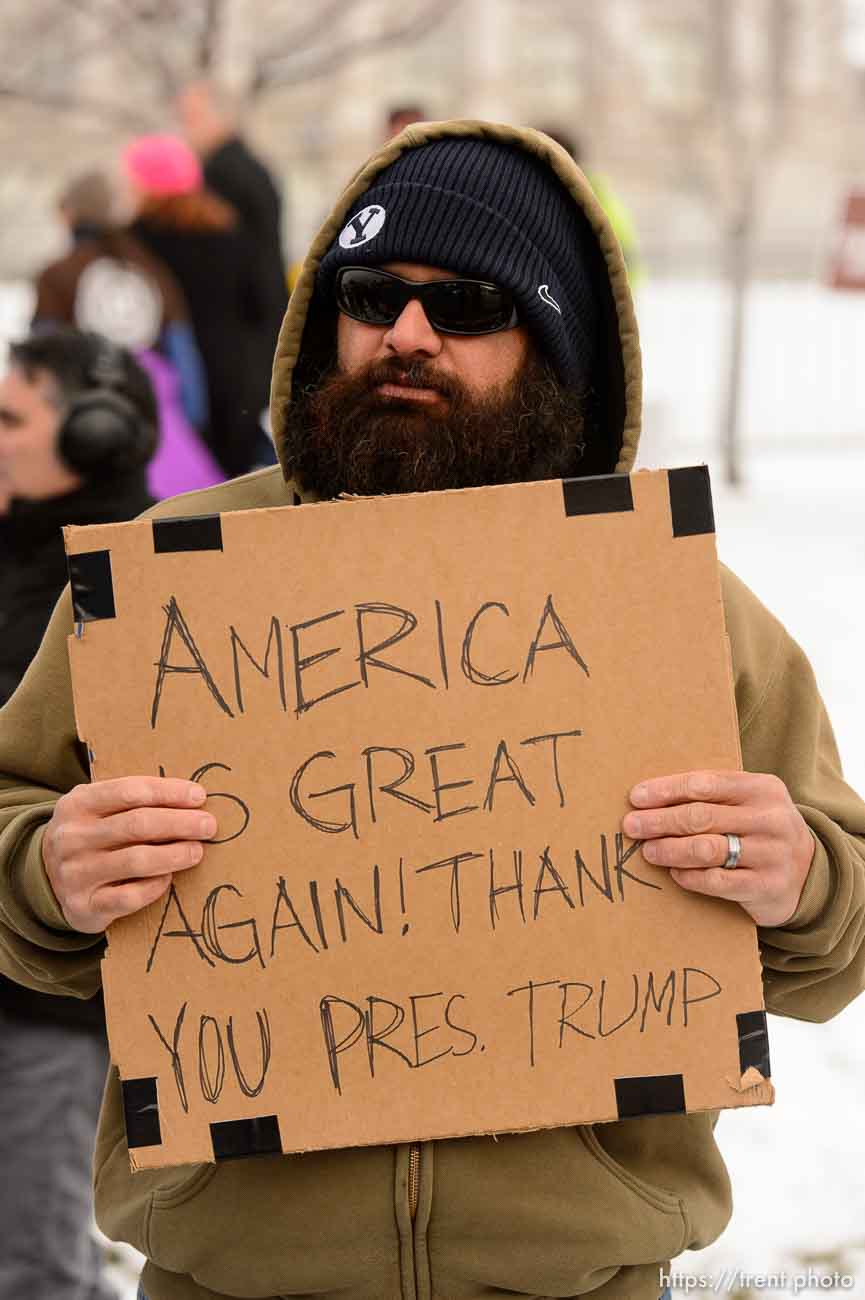 Y
AMERICA
IS GREAT
AGAIN! THANK
YOU PRES. TRUMP
https://trent.photo